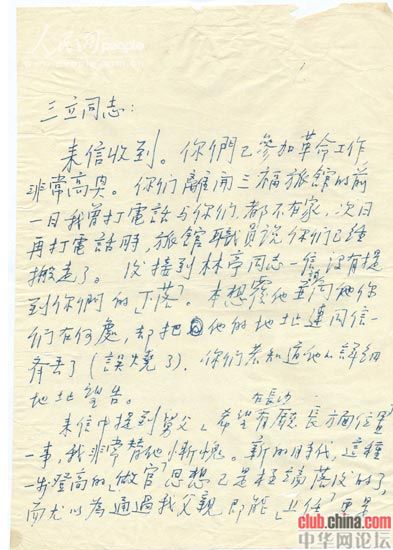 人民网
people
三立同志:
来信收到。你們已参加革命工作
非常高兴。你们離開三福旅館的前
一日我曾打電話与你们,都不在家,次日
再打電話時,旅館職員說你們已經
搬走了。後接到林亭同志一信,沒有提
到你們的「下落」。本想覆他並询问你
们在何處,却把他的地址連同信一
齐丢了(誤燒了)。你们若知道他的詳細
地址望告。
在長沙
来信中提到舅父「希望有廳長方面位置」
一事,我非常替他慚愧。新的時代,這種
一步登高的「做官」思想已是極端落後的了,
而尤以為通過我父親即能「上任」更是
club.china.com
中华网论坛